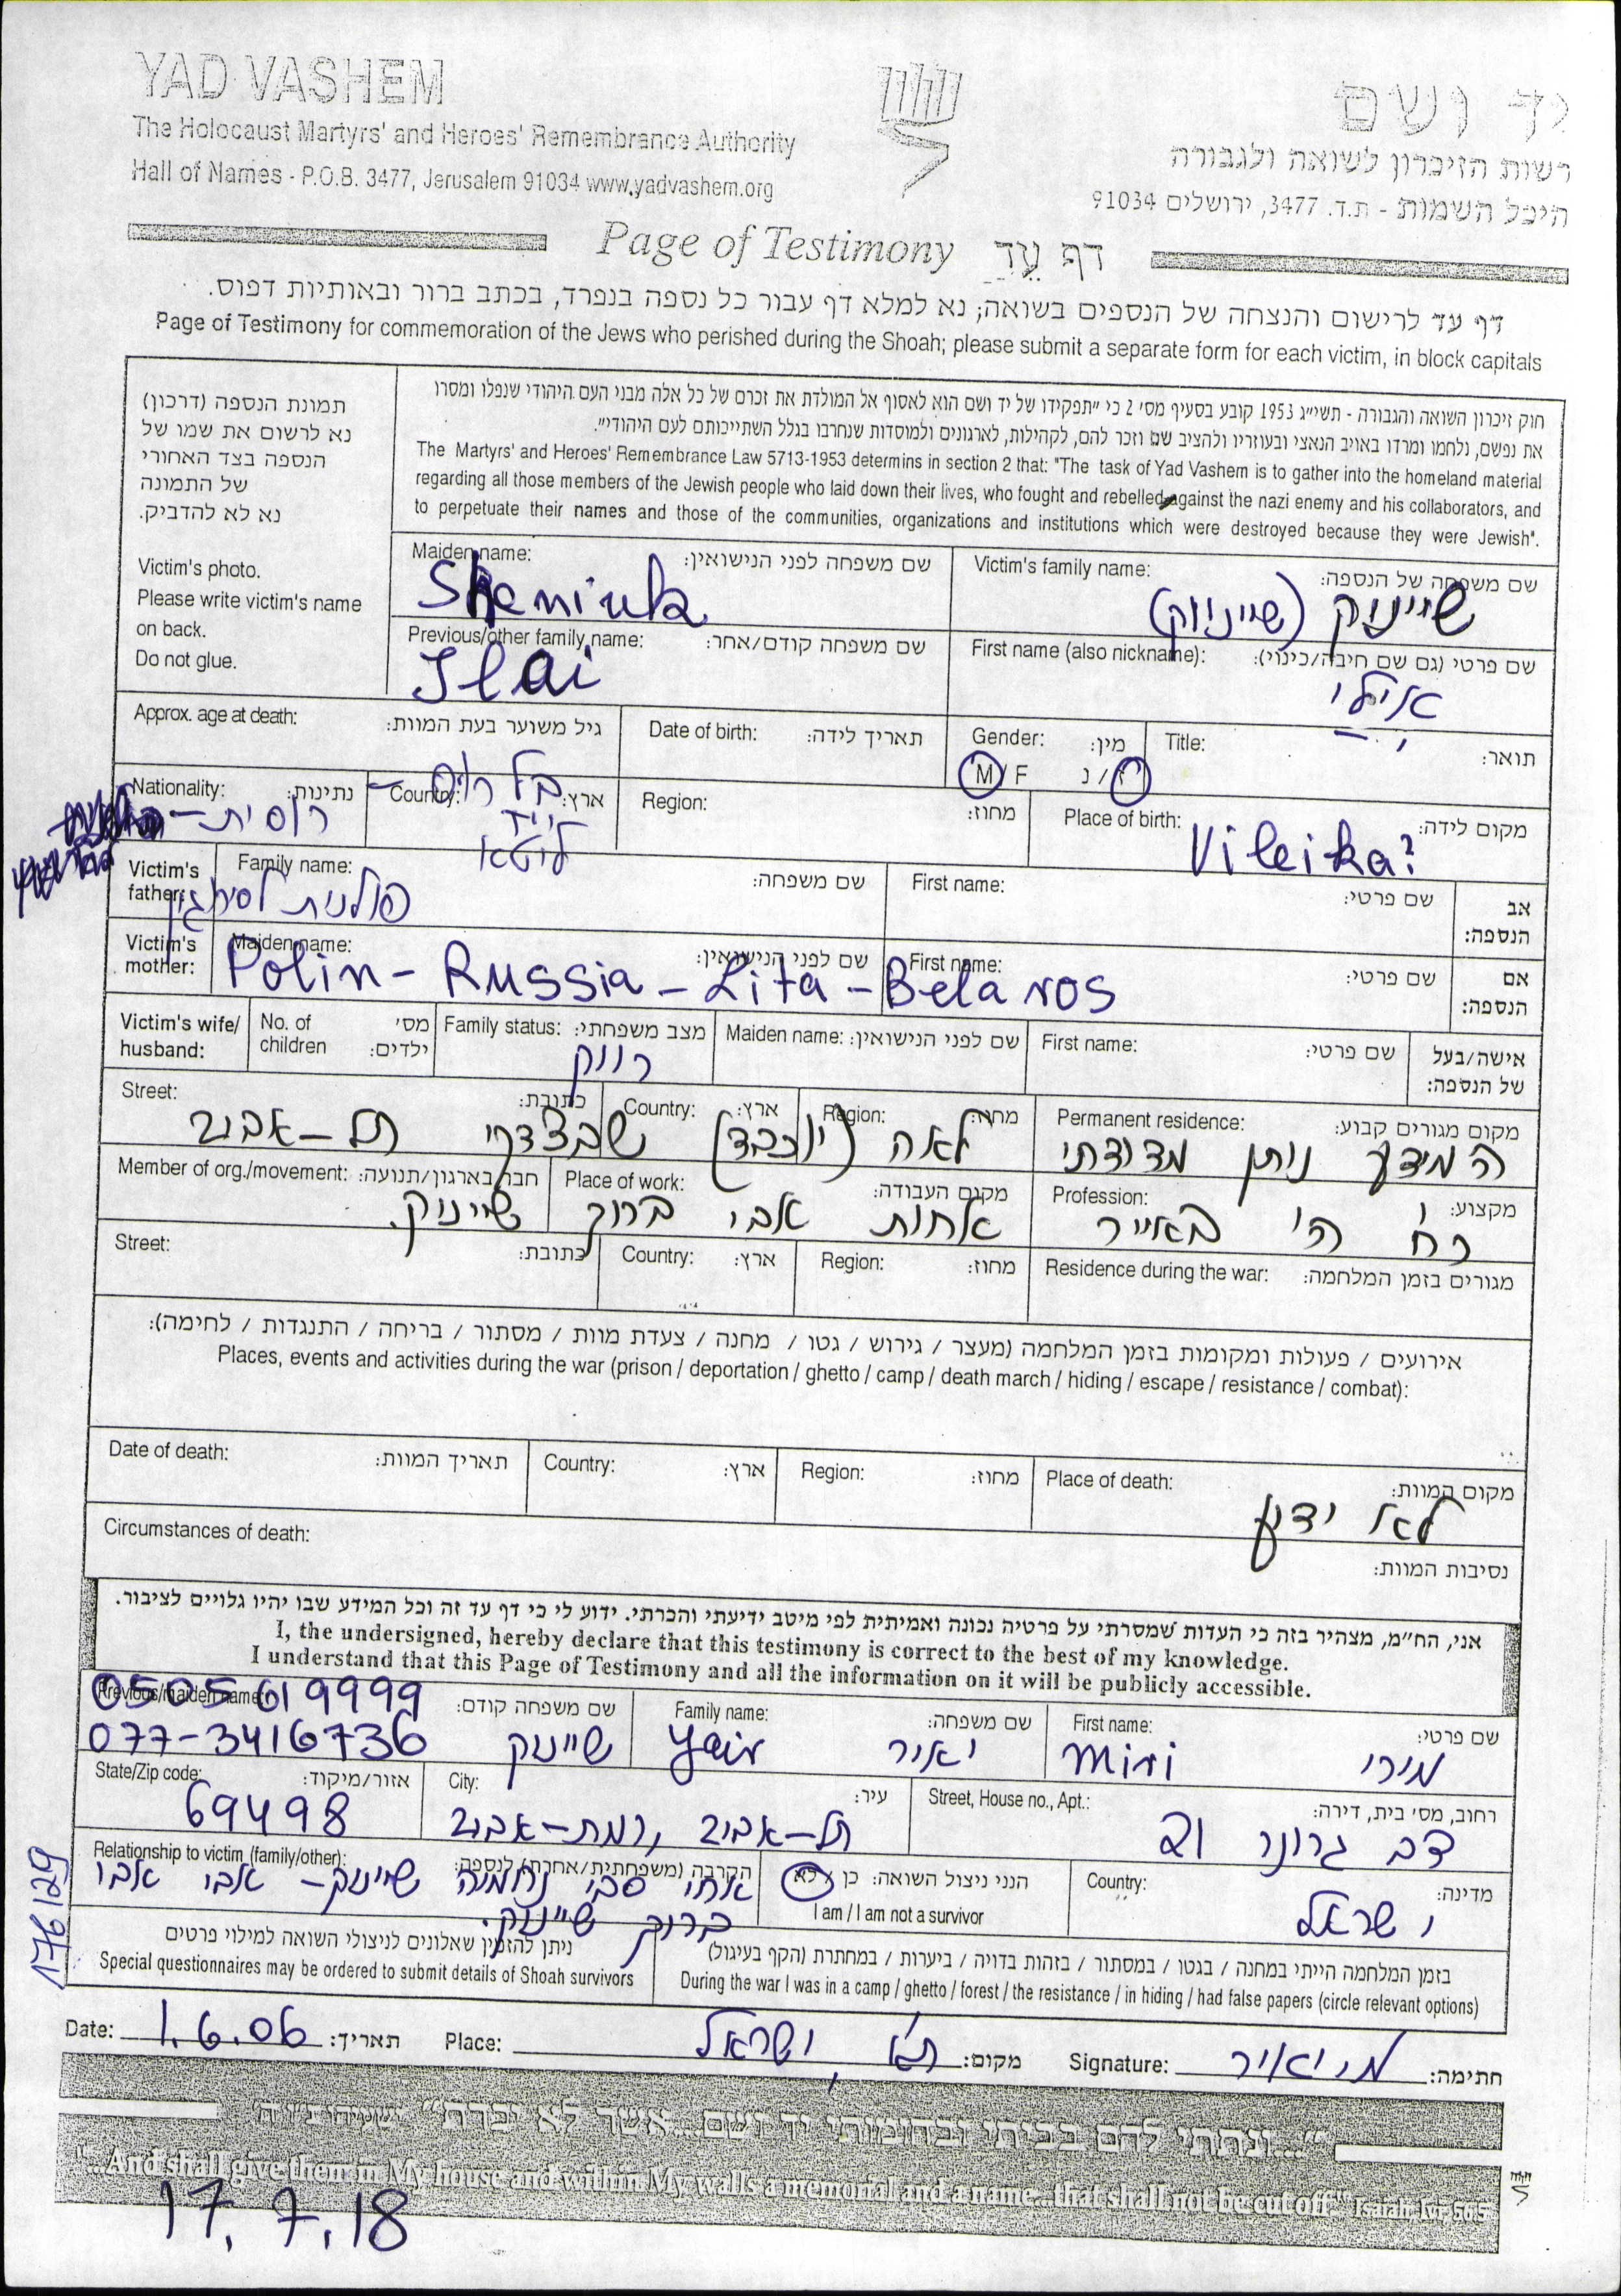 YAD VASHEM
יד ושם
The Holocaust Martyrs' and Heroes' Remembrance Authority
רשות הזיכרון לשואה ולגבורה
Hall of Names - P.O.B. 3477, Jerusalem 91034 www.yadvashem.org
היכל השמות - ת.ד. 3477, ירושלים 91034
Page of Testimony דף עד
דף עד לרישום והנצחה של הנספים בשואה; נא למלא דף עבור כל נספה בנפרד, בכתב ברור ובאותיות דפוס.
Page of Testimony for commemoration of the Jews who perished during the Shoah; please submit a separate form for each victim, in block capitals
תמונת הנספה (דרכון)
נא לרשום את שמו של
הנספה בצד האחורי
של התמונה
נא לא להדביק.
Victim's photo.
Please write victim's name
on back.
Do not glue.
חוק זיכרון השואה והגבורה - תשי״ג 1953 קובע בסעיף מס׳ 2 כי ״תפקידו של יד ושם הוא לאסוף אל המולדת את זכרם של כל אלה מבני העם היהודי שנפלו ומסרו
את נפשם, נלחמו ומרדו באויב הנאצי ובעוזריו ולהציב שם וזכר להם, לקהילות, לארגונים ולמוסדות שנחרבו בגלל השתייכותם לעם היהודי״.
The Martyrs' and Heroes' Remembrance Law 5713-1953 determins in section 2 that: "The task of Yad Vashem is to gather into the homeland material
regarding all those members of the Jewish people who laid down their lives, who fought and rebelled against the nazi enemy and his collaborators, and
to perpetuate their names and those of the communities, organizations and institutions which were destroyed because they were Jewish".
Maiden name: שם משפחה לפני הנישואין: Victim's family name: שם משפחה של הנספה:
Sheniuk שיינוק (שייניוק)
Previous/other family name: שם משפחה קודם/אחר: First name (also nickname): שם פרטי (גם שם חיבה/כינוי):
Ilai אילי
Approx. age at death: גיל משוער בעת המוות: Date of birth: תאריך לידה: Gender: מין: Title: תואר:
M / F ז / נ
Nationality: נתינות: Country: ארץ: Region: מחוז: Place of birth: מקום לידה:
רוסית - בל רוס Vileika?
ליטא
Victim's father: Family name: שם משפחה: First name: שם פרטי: אב הנספה:
פולנית
Victim's mother: Maiden name: שם לפני הנישואין: First name: שם פרטי: אם הנספה:
Polin - Russia - Lita - Bela ros
Victim's wife/ husband: No. of children מס׳ ילדים: Family status: מצב משפחתי: Maiden name: שם לפני הנישואין: First name: שם פרטי: אישה/בעל של הנספה:
רווק
Street: כתובת: Country: ארץ: Region: מחוז: Permanent residence: מקום מגורים קבוע:
המידע ניתן מדודתי לאה (יוכבד) תל-אביב
Member of org./movement: חבר בארגון/תנועה: Place of work: מקום העבודה: Profession: מקצוע:
אחות אבי ברוך שיינוק.
Street: כתובת: Country: ארץ: Region: מחוז: Residence during the war: מגורים בזמן המלחמה:
אירועים / פעולות ומקומות בזמן המלחמה (מעצר / גירוש / גטו / מחנה / צעדת מוות / מסתור / בריחה / התנגדות / לחימה):
Places, events and activities during the war (prison / deportation / ghetto / camp / death march / hiding / escape / resistance / combat):
Date of death: תאריך המוות: Country: ארץ: Region: מחוז: Place of death: מקום המוות:
לא ידוע
Circumstances of death: נסיבות המוות:
אני, הח״מ, מצהיר בזה כי העדות שמסרתי על פרטיה נכונה ואמיתית לפי מיטב ידיעתי והכרתי. ידוע לי כי דף עד זה וכל המידע שבו יהיו גלויים לציבור.
I, the undersigned, hereby declare that this testimony is correct to the best of my knowledge.
I understand that this Page of Testimony and all the information on it will be publicly accessible.
0505619999
Previous/maiden name: שם משפחה קודם: Family name: שם משפחה: First name: שם פרטי:
077-3416736 שיינוק Yair יאיר Miri מירי
State/Zip code: אזור/מיקוד: City: עיר: Street, House no., Apt.: רחוב, מס׳ בית, דירה:
69498 תל-אביב, רמת-אביב דב גרונר 21
Relationship to victim (family/other): הקרבה (משפחתית/אחרת) לנספה: הנני ניצול השואה: כן / לא Country: מדינה:
אחי סבי נחמיה שיינוק - אבי אבי ישראל
ברוך שיינוק.
I am / I am not a survivor
ניתן להזמין שאלונים לניצולי השואה למילוי פרטים
Special questionnaires may be ordered to submit details of Shoah survivors
בזמן המלחמה הייתי במחנה / בגטו / במסתור / בזהות בדויה / ביערות / במחתרת (הקף בעיגול)
During the war I was in a camp / ghetto / forest / the resistance / in hiding / had false papers (circle relevant options)
176129
Date: 1.6.06 תאריך: Place: ת״א, ישראל מקום: Signature: מ יאיר חתימה:
״...ונתתי להם בביתי ובחומותי יד ושם...אשר לא יכרת״ ישעיהו נ״ו ה׳
"...And shall give them in My house and within My walls a memorial and a name...that shall not be cut off" Isaiah, lvi, 56:5
17.7.18